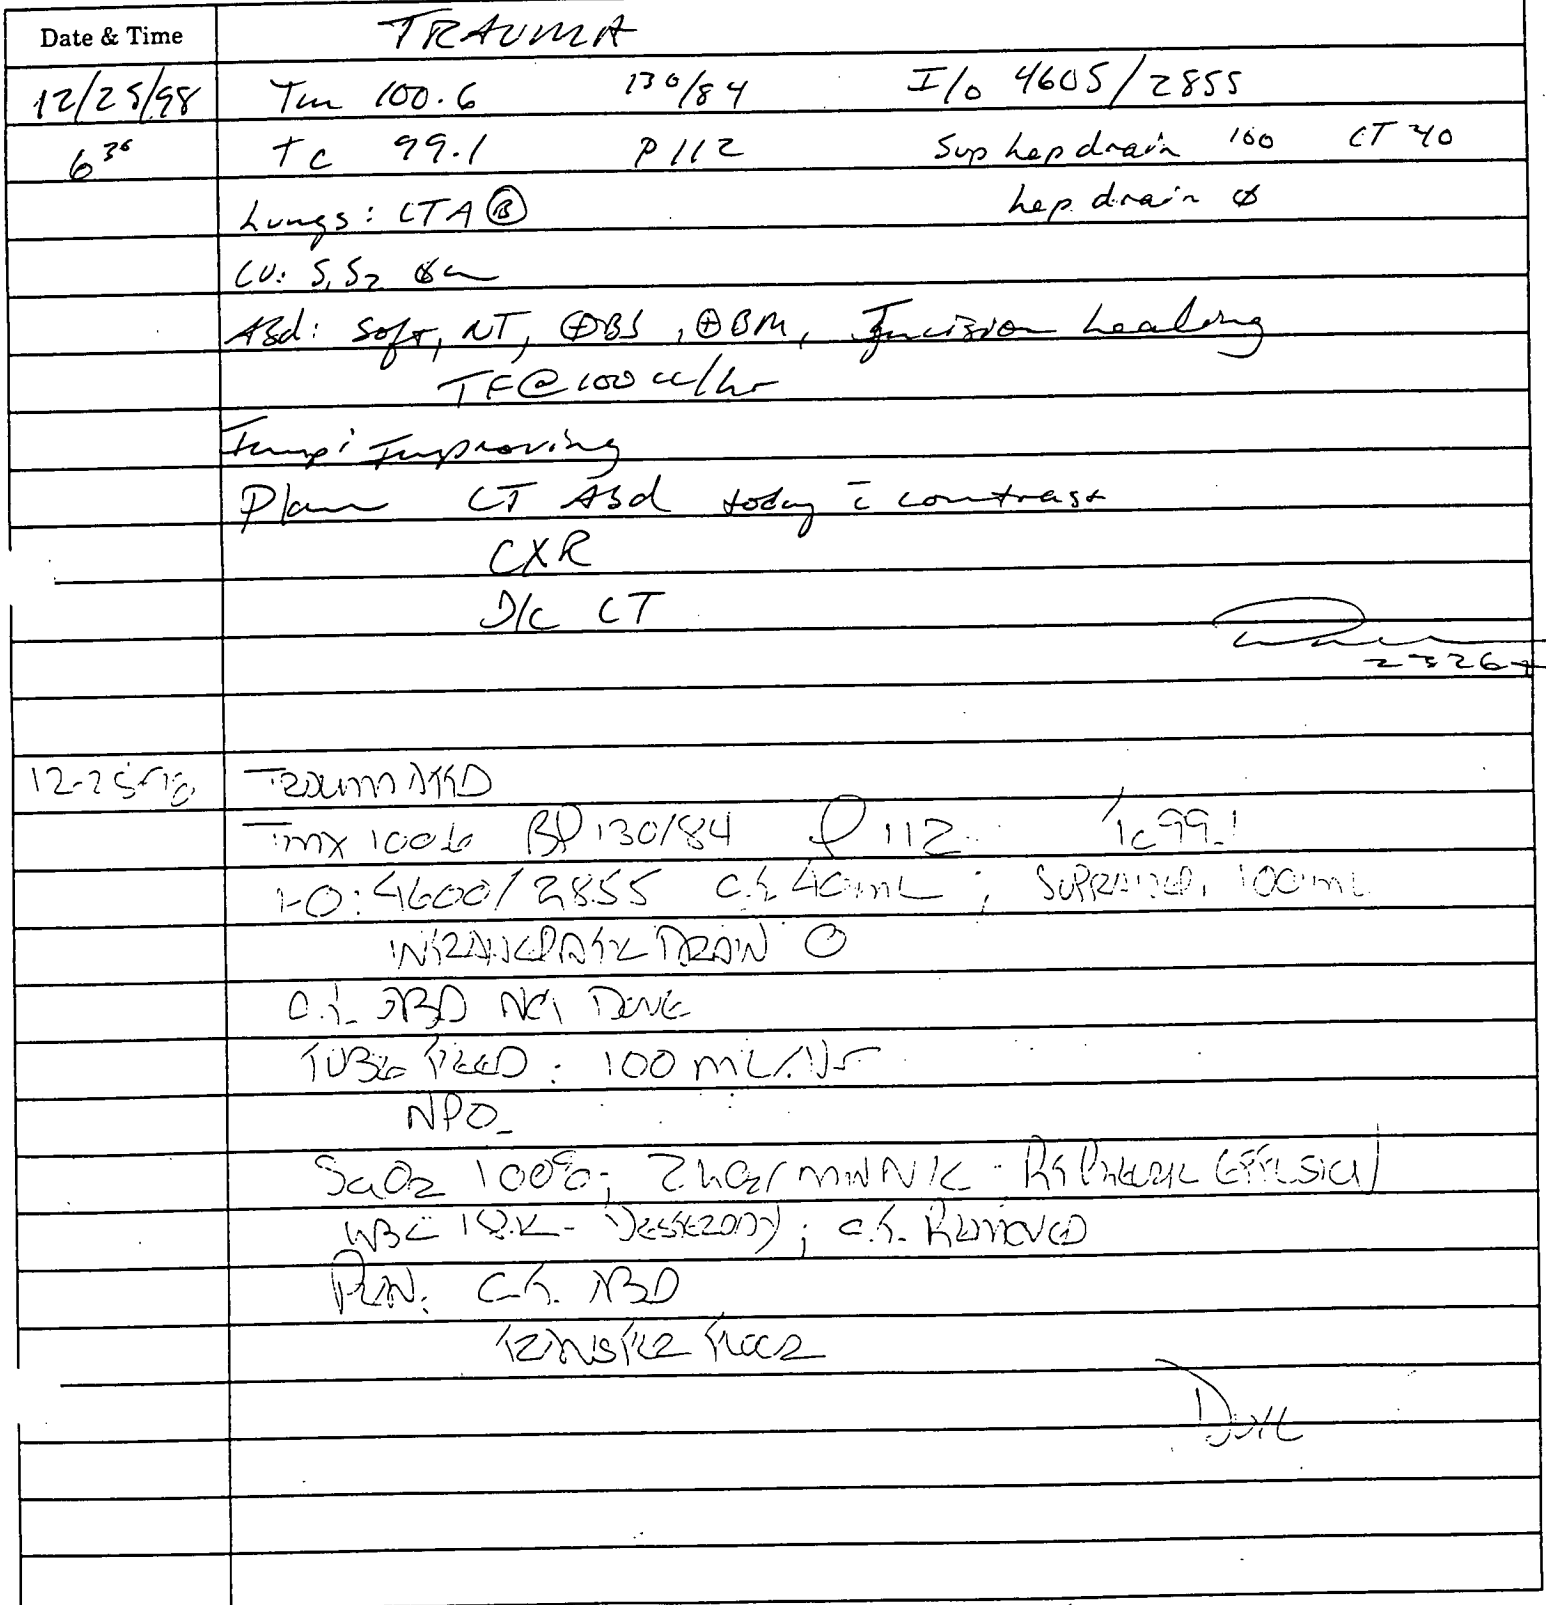 Date & Time TRAUMA
12/25/98 Tm 100.6 130/84 I/o 4605/2855
6 30 Tc 99.1 P 112 Sup hep drain 100 CT 40
Lungs: CTA Ⓑ hep. drain ∅
CV: S1 S2 ∅ m
Abd: Soft, NT, ⊕BS, ⊕BM, Incision healing
TF@100 cc/hr
Imp: Improving
Plan CT Abd today c̄ contrast
CXR
D/C CT
12-25-98 TRAUMA
Tmx 100.6 BP 130/84 P 112 Tc 99.1
I-O: 4600/2855 C.T. 40 mL ; SUPRAHEP. 100 mL
INTRAHEPATIC DRAIN O
C.T. ABD NOT DONE
TUBE FEED: 100 mL/hr
NPO
SaO2 100%; 2 L O2/ min N/C - Rt PLEURAL EFFUSION
WBC 18.K - ; C.T. REMOVED
PLAN: C.T. ABD
TRANSFER FLOOR